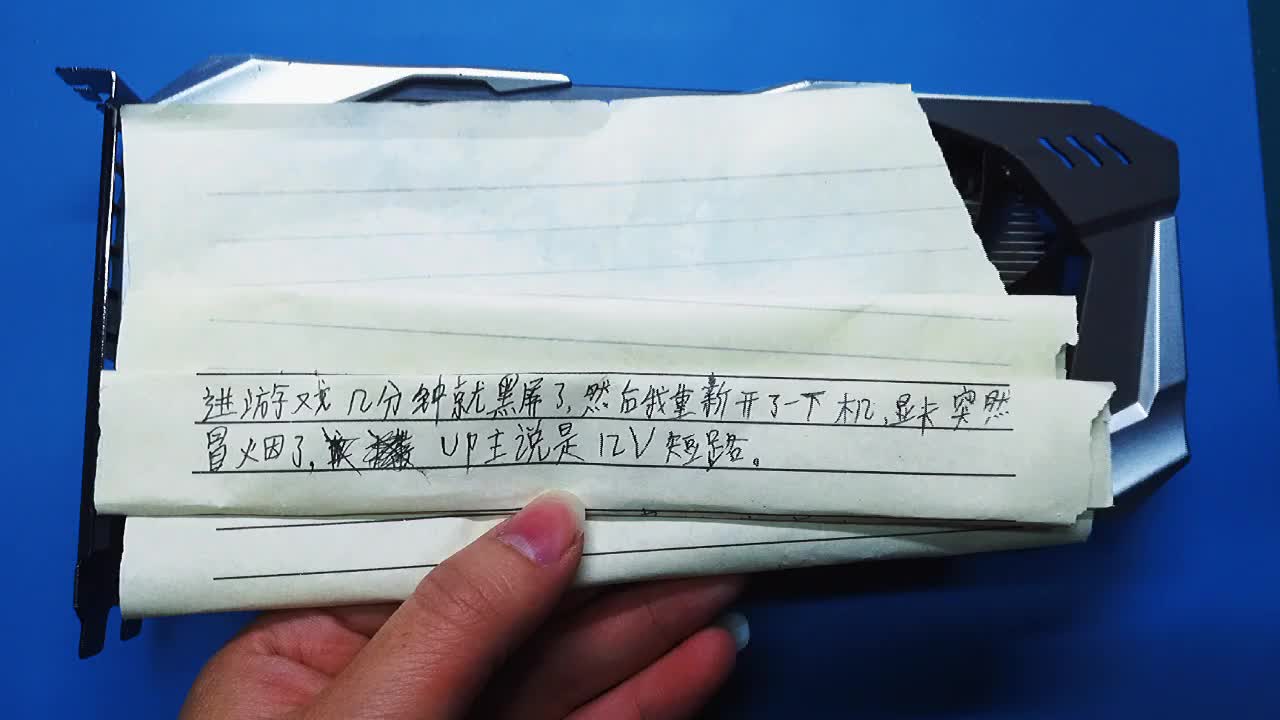 进游戏几分钟就黑屏了,然后我重新开了一下机,显卡突然
冒火因了, UP主说是12V短路。